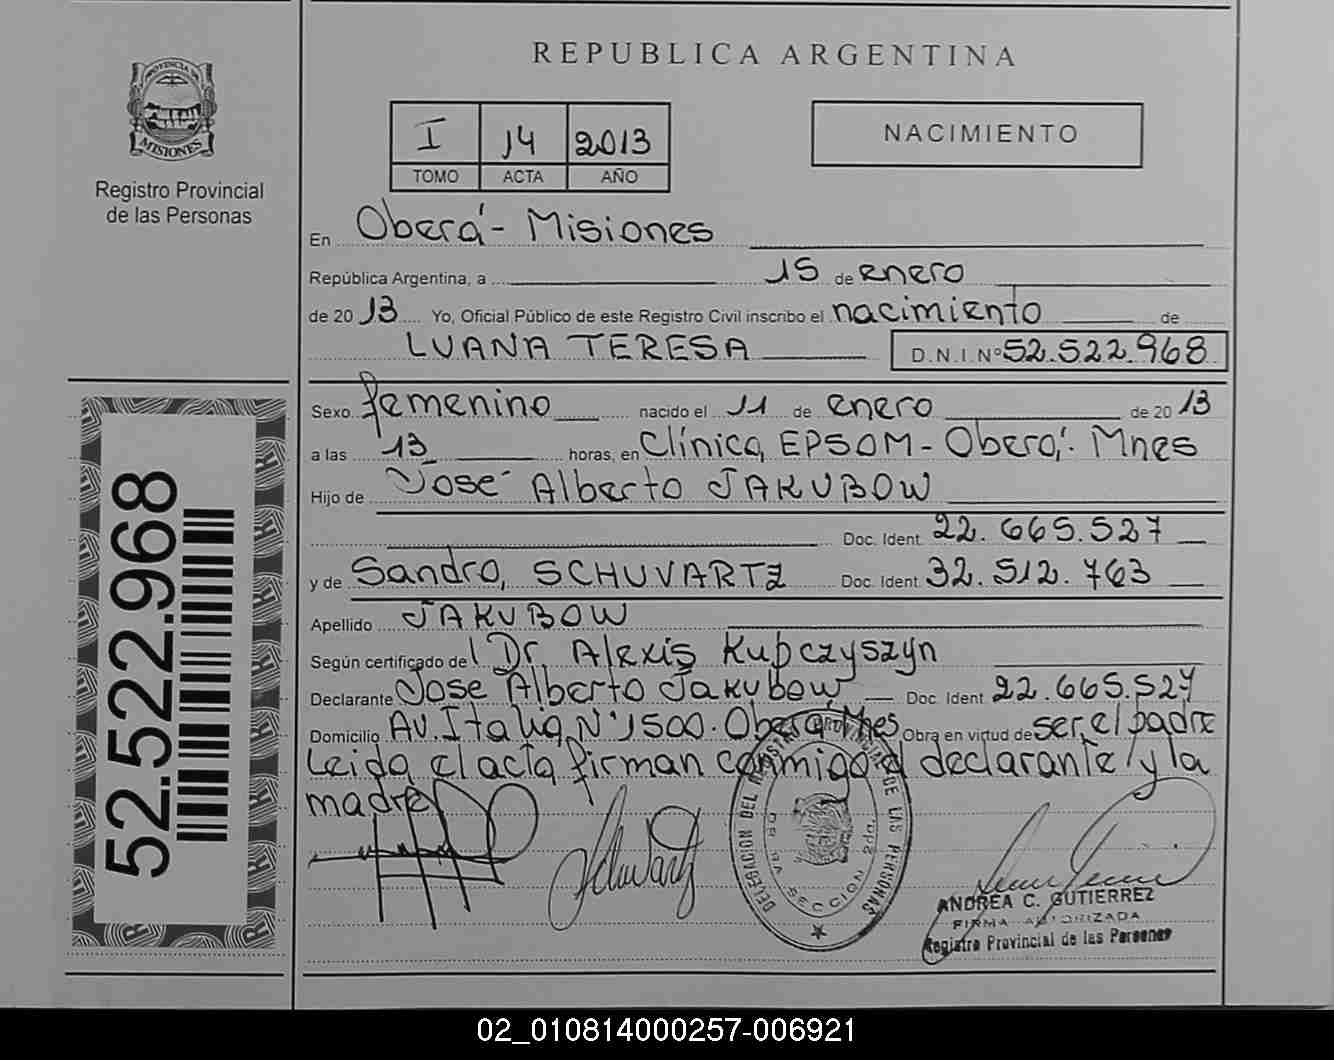 REPUBLICA ARGENTINA
PROVINCIA DE
MISIONES
Registro Provincial
de las Personas
I 14 2013
TOMO ACTA AÑO
NACIMIENTO
En Oberá - Misiones
República Argentina, a 15 de enero
de 2013 Yo, Oficial Público de este Registro Civil inscribo el nacimiento de
LUANA TERESA D.N.I. Nº 52.522.968
Sexo femenino nacido el 11 de enero de 2013
a las 13 horas, en Clínica EPSOM - Oberá. Mnes
Hijo de José Alberto JAKUBOW
Doc. Ident. 22.665.527
y de Sandra, SCHUVARTZ Doc. Ident. 32.512.763
Apellido JAKUBOW
Según certificado del Dr. Alexis Kupczyszyn
Declarante Jose Alberto Jakubow Doc. Ident 22.665.527
Domicilio Av. Italia Nº 1500. Oberá Mnes Obra en virtud de ser el padre
Leida el acta firman conmigo el declarante y la
madre
52.522.968
DELEGACION DEL REGISTRO PROVINCIAL DE LAS PERSONAS
SECCION 2da.
ANDREA C. GUTIERREZ
FIRMA AUTORIZADA
Registro Provincial de las Personas
02_010814000257-006921